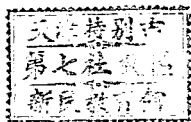 天津特別市
第七社
新民教育館